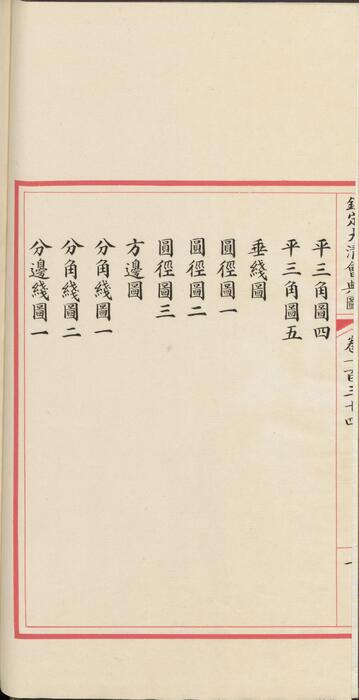 欽定大清會典圖 卷一百三十四 一
平三角圖四
平三角圖五
垂綫圖
圓徑圖一
圓徑圖二
圓徑圖三
方邊圖
分角綫圖一
分角綫圖二
分邊綫圖一